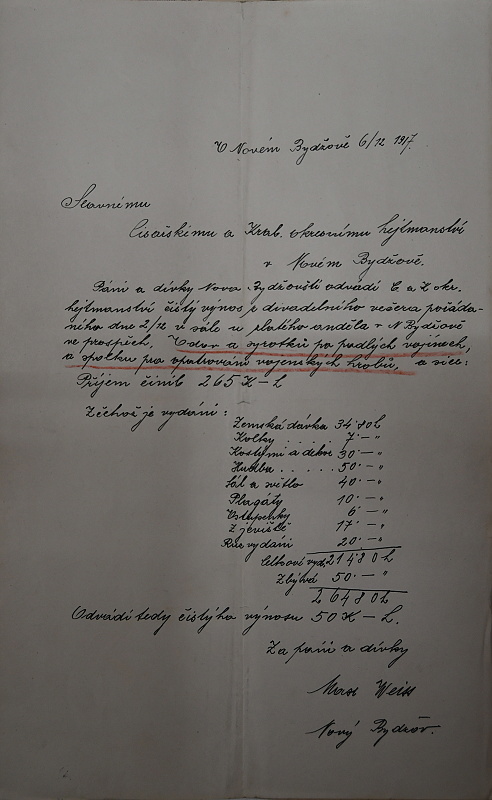 V Novém Bydžově 6/12 1917.
Slavnému
Císařskému a Král. okresnímu hejtmanství
v Novém Bydžově.
Páni a dívky Novo Bydžovští odvádí C. a K. okr.
hejtmanství čistý výnos z divadelního večera pořáda-
ného dne 2/12 v sále u zlatého anděla v N Bydžově
ve prospěch, Vdov a syrotků po padlých vojínech,
a spolku pro opatrování vojenských hrobů, a sice:
Příjem činil 265 K – h
Z čehož je vydání:
Zemská dávka 34 80 h
Kolky . . . . 7 – „
Kostými a dekor 30 – „
Hudba . . . . 50 – „
Sál a světlo 40 – „
Plagáty 10 – „
Vstupenky 6 – „
Z jeviště 17 – „
Růz vydání 20 – „
Celkoví vyd. 214 80 h
Zbývá 50 – „
264 80 h
Odvádí tedy čistýho výnosu 50 K – h.
Za páni a dívky
Max Weiss
Nový Bydžov.